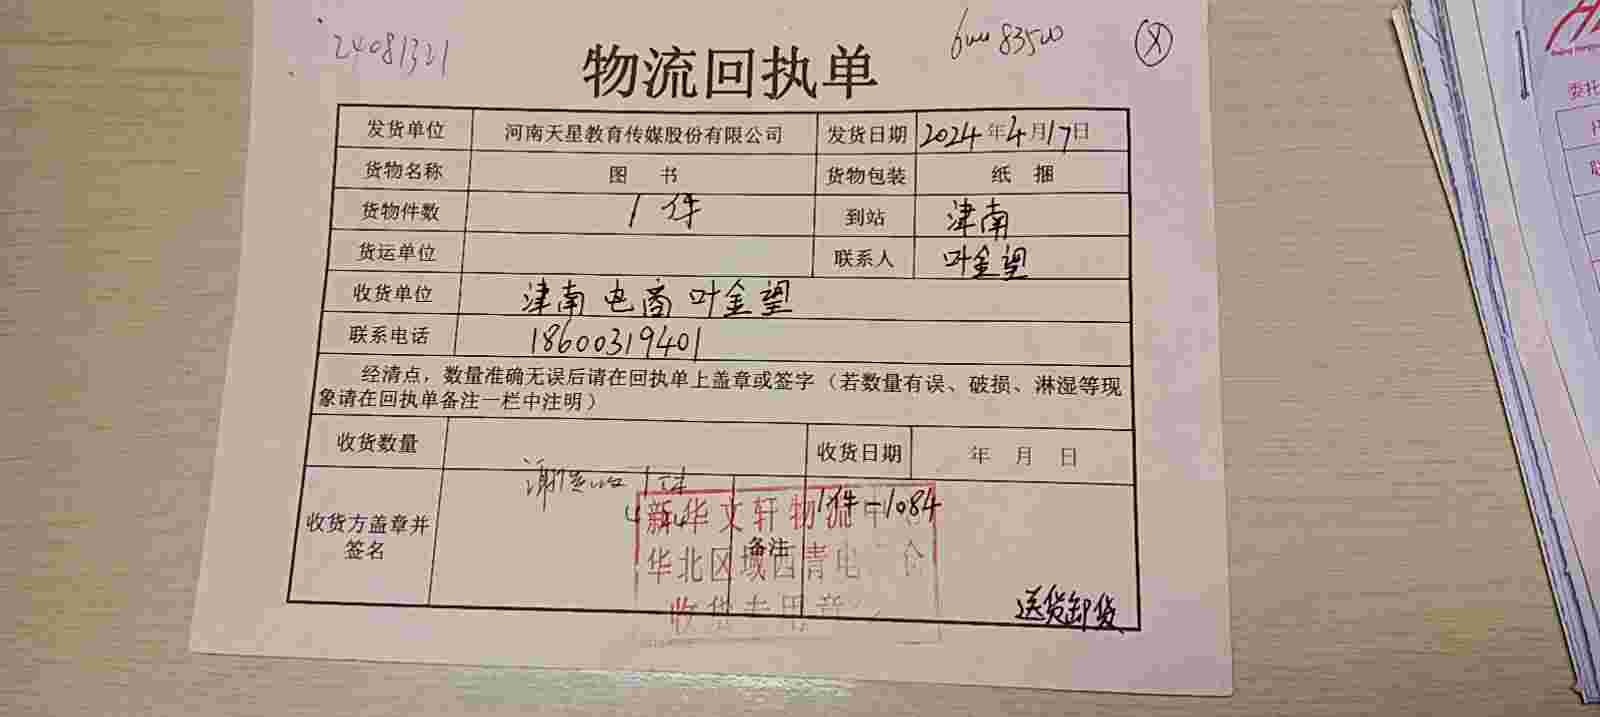 24081321
物流回执单
发货单位 河南天星教育传媒股份有限公司 发货日期 2024年4月17日
货物名称 图 书 货物包装 纸 捆
货物件数 1件 到站 津南
货运单位 联系人 叶金望
收货单位 津南电商叶金望
联系电话 18600319401
经清点，数量准确无误后请在回执单上盖章或签字（若数量有误、破损、淋湿等现
象请在回执单备注一栏中注明）
收货数量 收货日期 年 月 日
收货方盖章并
签名
备注
1件-1084
新华文轩物流中
华北区域西青电 仓
收货专用章
送货卸货
委托